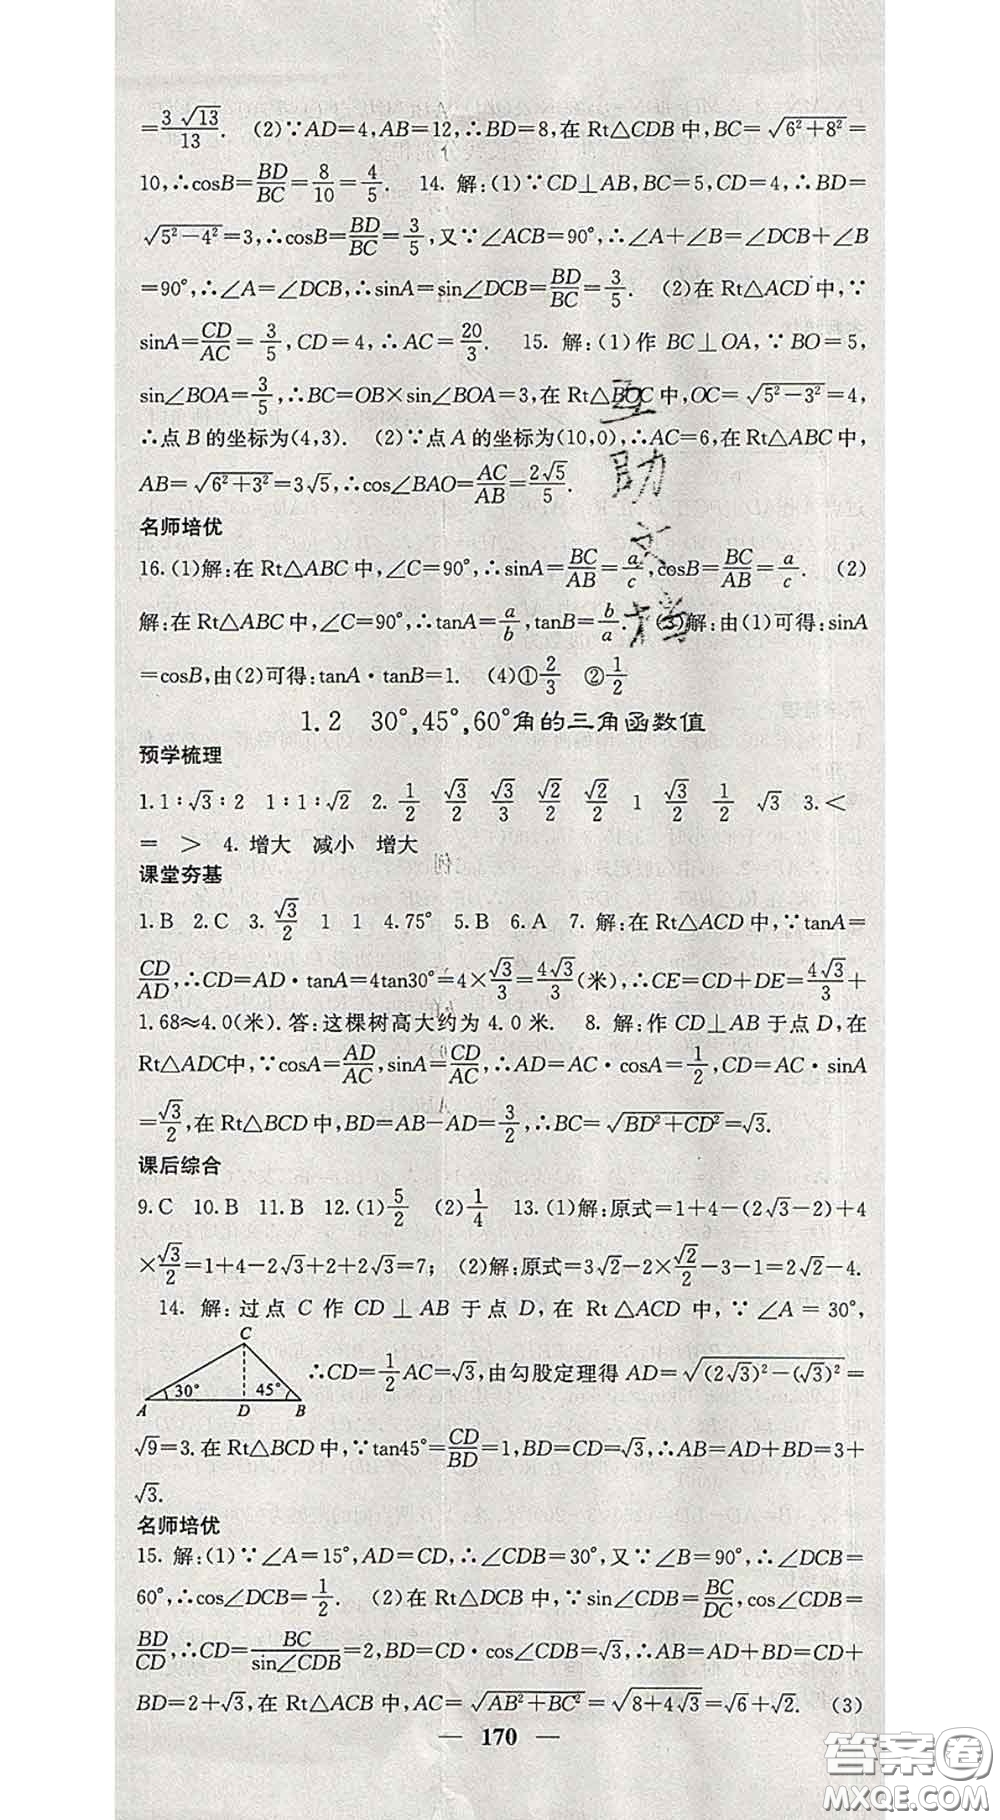 =3√13/13. (2)∵AD=4,AB=12,∴BD=8,在Rt△CDB中,BC=√(6²+8²)=
10,∴cosB=BD/BC=8/10=4/5. 14. 解:(1)∵CD⊥AB,BC=5,CD=4,∴BD=
√(5²-4²)=3,∴cosB=BD/BC=3/5,又∵∠ACB=90°,∴∠A+∠B=∠DCB+∠B
=90°,∴∠A=∠DCB,∴sinA=sin∠DCB=BD/BC=3/5. (2)在Rt△ACD中,∵
sinA=CD/AC=3/5,CD=4,∴AC=20/3. 15. 解:(1)作BC⊥OA,∵BO=5,
sin∠BOA=3/5,∴BC=OB×sin∠BOA=3,在Rt△BOC中,OC=√(5²-3²)=4,
∴点B的坐标为(4,3). (2)∵点A的坐标为(10,0),∴AC=6,在Rt△ABC中,
AB=√(6²+3²)=3√5,∴cos∠BAO=AC/AB=2√5/5.
名师培优
16.(1)解:在Rt△ABC中,∠C=90°,∴sinA=BC/AB=a/c,cosB=BC/AB=a/c. (2)
解:在Rt△ABC中,∠C=90°,∴tanA=a/b,tanB=b/a. (3)解:由(1)可得:sinA
=cosB,由(2)可得:tanA·tanB=1. (4)①2/3 ②1/2
1.2 30°,45°,60°角的三角函数值
预学梳理
1.1∶√3∶2 1∶1∶√2 2.1/2 √3/2 √3/3 √2/2 √2/2 1 √3/2 1/2 √3 3.<
= > 4. 增大 减小 增大
课堂夯基
1.B 2.C 3.√3/2 1 1 4.75° 5.B 6.A 7. 解:在Rt△ACD中,∵tanA=
CD/AD,∴CD=AD·tanA=4tan30°=4×√3/3=4√3/3(米),∴CE=CD+DE=4√3/3+
1.68≈4.0(米).答:这棵树高大约为4.0米. 8. 解:作CD⊥AB于点D,在
Rt△ADC中,∵cosA=AD/AC,sinA=CD/AC,∴AD=AC·cosA=1/2,CD=AC·sinA
=√3/2,在Rt△BCD中,BD=AB-AD=3/2,∴BC=√(BD²+CD²)=√3.
课后综合
9.C 10.B 11.B 12.(1)5/2 (2)1/4 13.(1)解:原式=1+4-(2√3-2)+4
×√3/2=1+4-2√3+2+2√3=7; (2)解:原式=3√2-2×√2/2-3-1=2√2-4.
14. 解:过点C作CD⊥AB于点D,在Rt△ACD中,∵∠A=30°,
C
30° 45°
A D B
∴CD=1/2AC=√3,由勾股定理得AD=√((2√3)²-(√3)²)=
√9=3.在Rt△BCD中,∵tan45°=CD/BD=1,BD=CD=√3,∴AB=AD+BD=3+
√3.
名师培优
15. 解:(1)∵∠A=15°,AD=CD,∴∠CDB=30°,又∵∠B=90°,∴∠DCB=
60°,∴cos∠DCB=1/2. (2)在Rt△DCB中,∵sin∠CDB=BC/DC,cos∠CDB=
BD/CD,∴CD=BC/sin∠CDB=2,BD=CD·cos∠CDB=√3,∴AB=AD+BD=CD+
BD=2+√3,在Rt△ACB中,AC=√(AB²+BC²)=√(8+4√3)=√6+√2. (3)
— 170 —
互助文档
答案圈
MXQE.COM